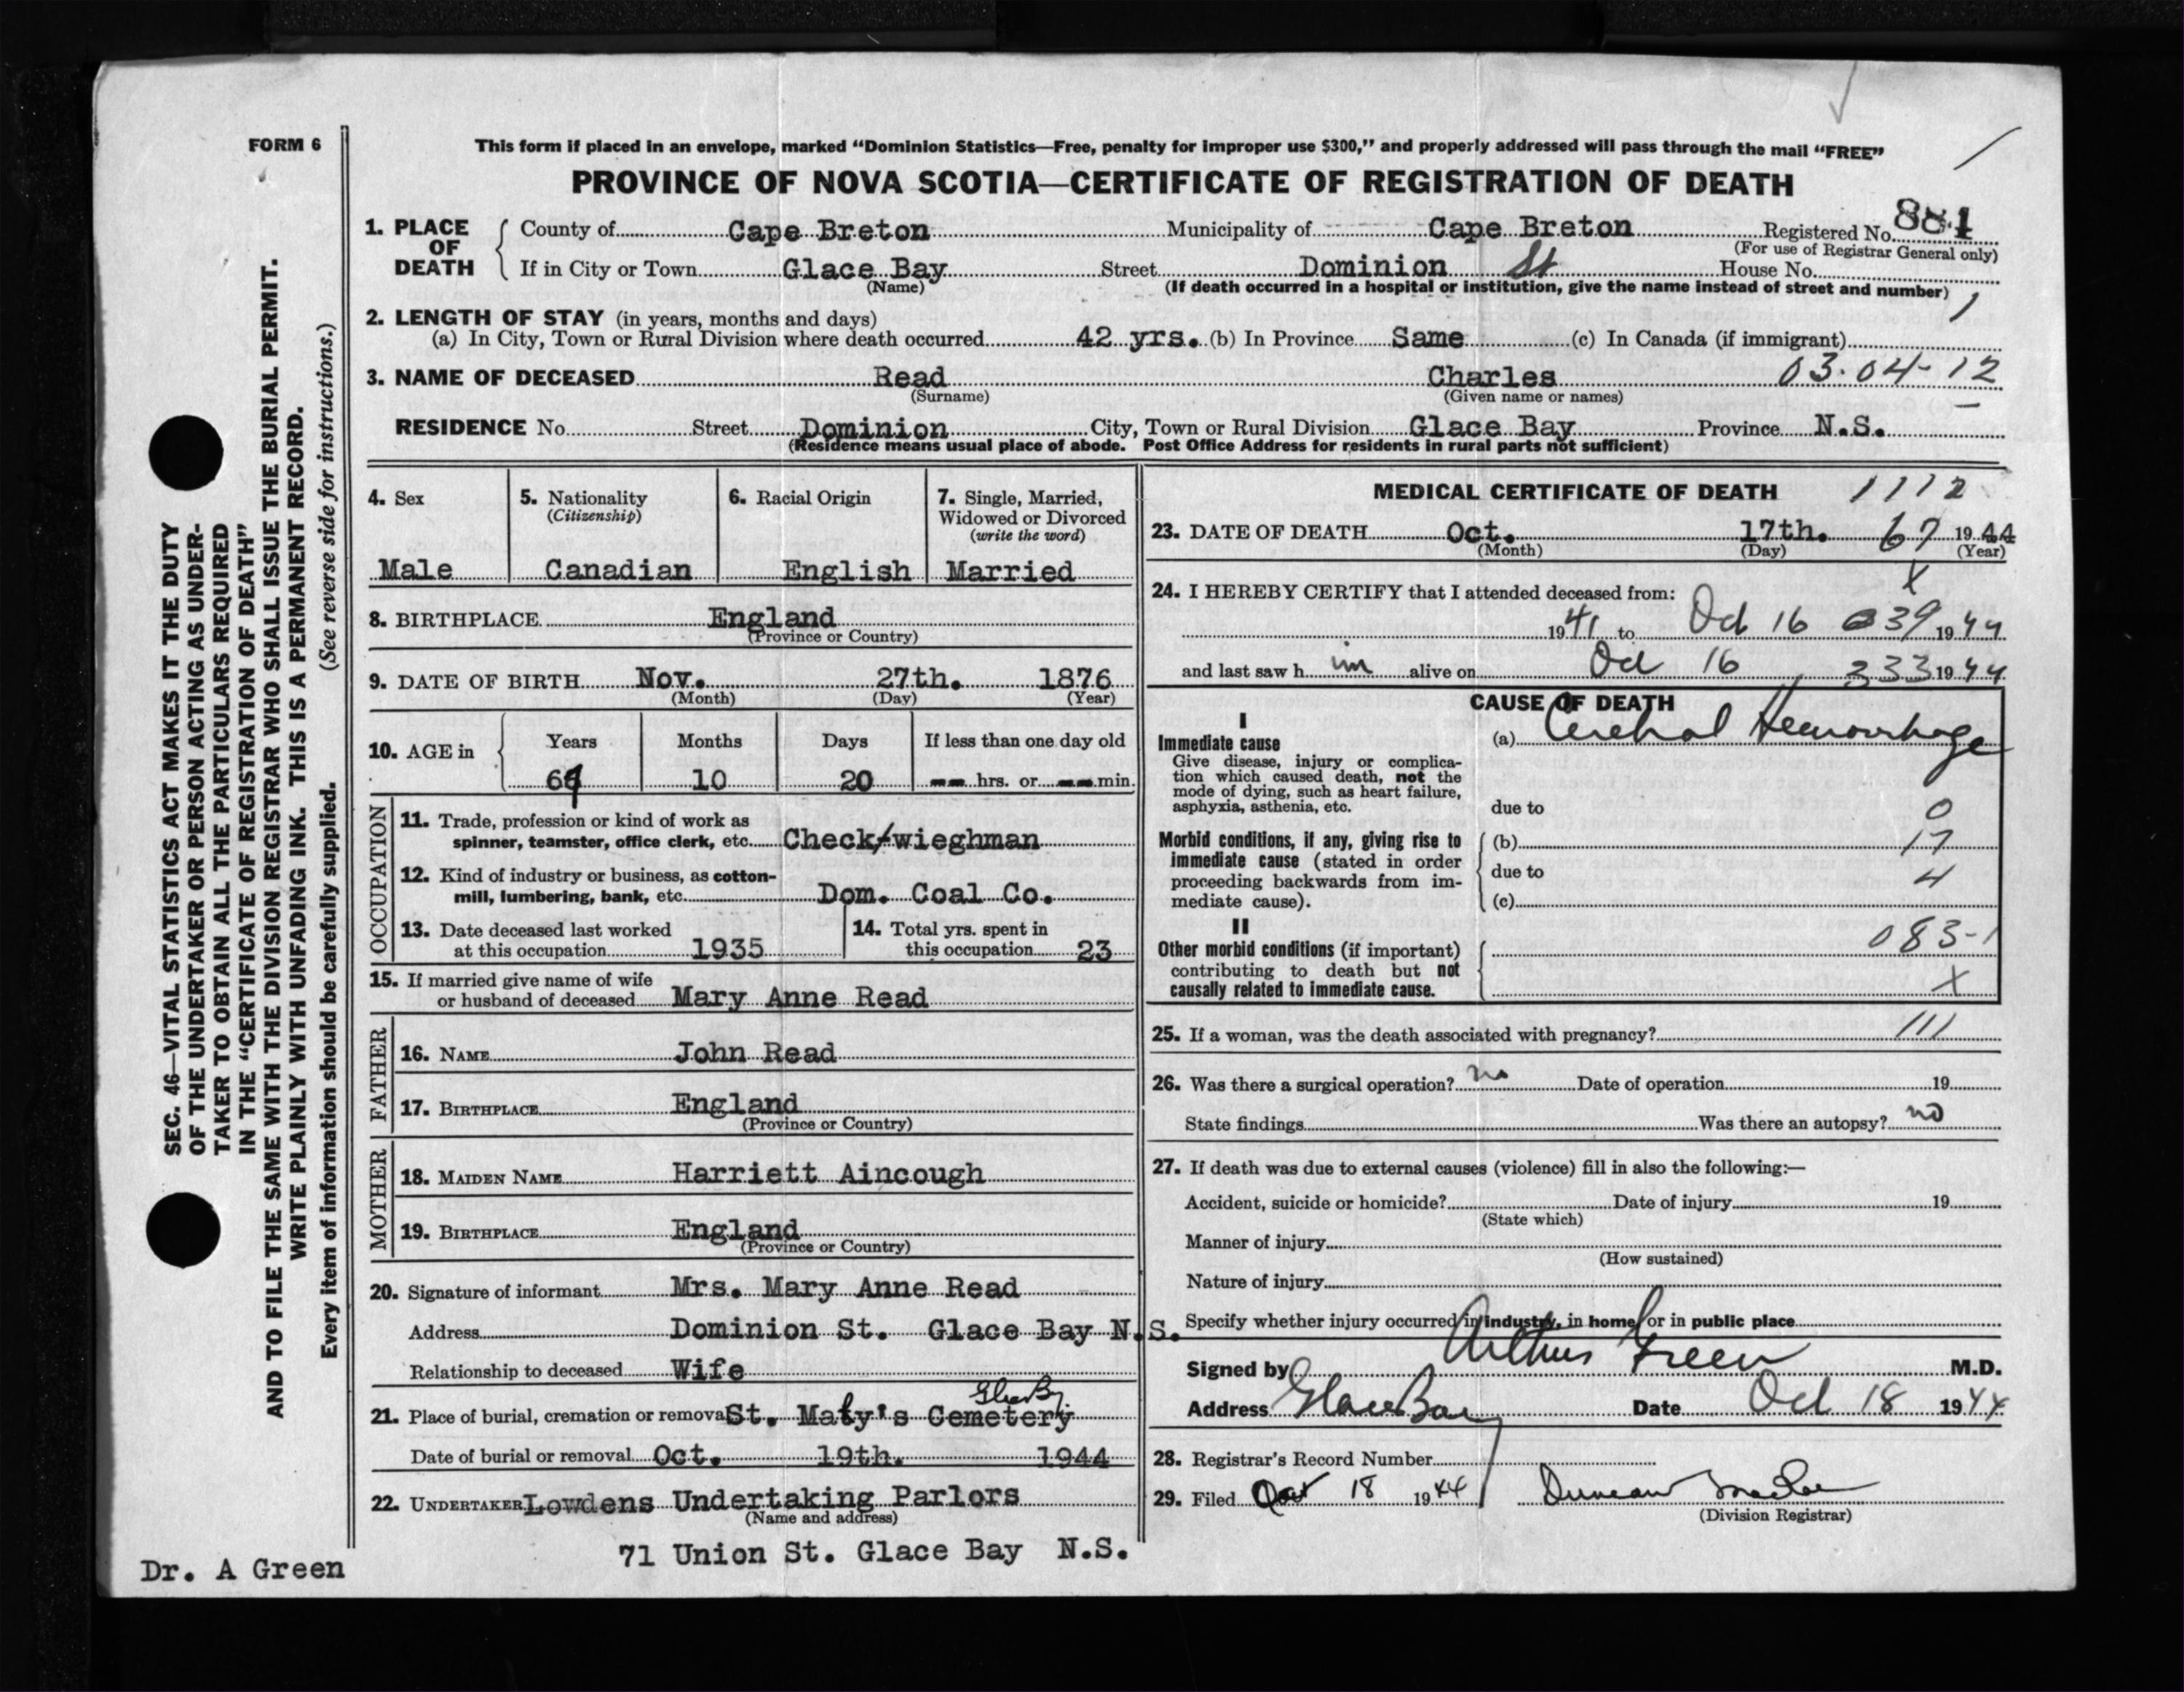 FORM 6
This form if placed in an envelope, marked "Dominion Statistics—Free, penalty for improper use $300," and properly addressed will pass through the mail "FREE"
PROVINCE OF NOVA SCOTIA—CERTIFICATE OF REGISTRATION OF DEATH
1. PLACE OF DEATH
County of Cape Breton Municipality of Cape Breton Registered No. 881
(For use of Registrar General only)
If in City or Town Glace Bay Street Dominion St House No.
(Name) (If death occurred in a hospital or institution, give the name instead of street and number)
2. LENGTH OF STAY (in years, months and days)
(a) In City, Town or Rural Division where death occurred 42 yrs. (b) In Province Same (c) In Canada (if immigrant)
3. NAME OF DECEASED Read Charles 03.04-12
(Surname) (Given name or names)
RESIDENCE No. Street Dominion City, Town or Rural Division Glace Bay Province N.S.
(Residence means usual place of abode. Post Office Address for residents in rural parts not sufficient)
4. Sex
Male
5. Nationality
(Citizenship)
Canadian
6. Racial Origin
English
7. Single, Married, Widowed or Divorced
(write the word)
Married
8. BIRTHPLACE England
(Province or Country)
9. DATE OF BIRTH Nov. 27th. 1876
(Month) (Day) (Year)
10. AGE in Years Months Days If less than one day old
10 20 -- hrs. or -- min.
OCCUPATION
11. Trade, profession or kind of work as
spinner, teamster, office clerk, etc. Check/wieghman
12. Kind of industry or business, as cotton-
mill, lumbering, bank, etc. Dom. Coal Co.
13. Date deceased last worked
at this occupation 1935
14. Total yrs. spent in
this occupation 23
15. If married give name of wife
or husband of deceased Mary Anne Read
FATHER
16. NAME John Read
17. BIRTHPLACE England
(Province or Country)
MOTHER
18. MAIDEN NAME Harriett Aincough
19. BIRTHPLACE England
(Province or Country)
20. Signature of informant Mrs. Mary Anne Read
Address Dominion St. Glace Bay N.S.
Relationship to deceased Wife
Glace Bay
21. Place of burial, cremation or removal St. Mary's Cemetery
Date of burial or removal Oct. 19th. 1944
22. UNDERTAKER Lowdens Undertaking Parlors
(Name and address)
71 Union St. Glace Bay N.S.
MEDICAL CERTIFICATE OF DEATH 1112
23. DATE OF DEATH Oct. 17th. 67 1944
(Month) (Day) (Year)
24. I HEREBY CERTIFY that I attended deceased from: X
1941 to Oct 16 039 1944
and last saw him alive on Oct 16 333 1944
CAUSE OF DEATH
I
Immediate cause
Give disease, injury or complica-
tion which caused death, not the
mode of dying, such as heart failure,
asphyxia, asthenia, etc.
(a) Cerebral Hemorrhage
due to 0
Morbid conditions, if any, giving rise to
immediate cause (stated in order
proceeding backwards from im-
mediate cause).
(b) 17
due to 4
(c)
II
Other morbid conditions (if important)
contributing to death but not
causally related to immediate cause.
083-1
X
25. If a woman, was the death associated with pregnancy? 111
26. Was there a surgical operation? no Date of operation 19
State findings Was there an autopsy? no
27. If death was due to external causes (violence) fill in also the following:—
Accident, suicide or homicide? Date of injury 19
(State which)
Manner of injury
(How sustained)
Nature of injury
Specify whether injury occurred in industry, in home or in public place
Signed by Arthur Green M.D.
Address Glace Bay Date Oct 18 1944
28. Registrar's Record Number
29. Filed Oct 18 1944 Duncan
(Division Registrar)
SEC. 46—VITAL STATISTICS ACT MAKES IT THE DUTY
OF THE UNDERTAKER OR PERSON ACTING AS UNDER-
TAKER TO OBTAIN ALL THE PARTICULARS REQUIRED
IN THE "CERTIFICATE OF REGISTRATION OF DEATH"
AND TO FILE THE SAME WITH THE DIVISION REGISTRAR WHO SHALL ISSUE THE BURIAL PERMIT.
WRITE PLAINLY WITH UNFADING INK. THIS IS A PERMANENT RECORD.
Every item of information should be carefully supplied. (See reverse side for instructions.)
Dr. A Green